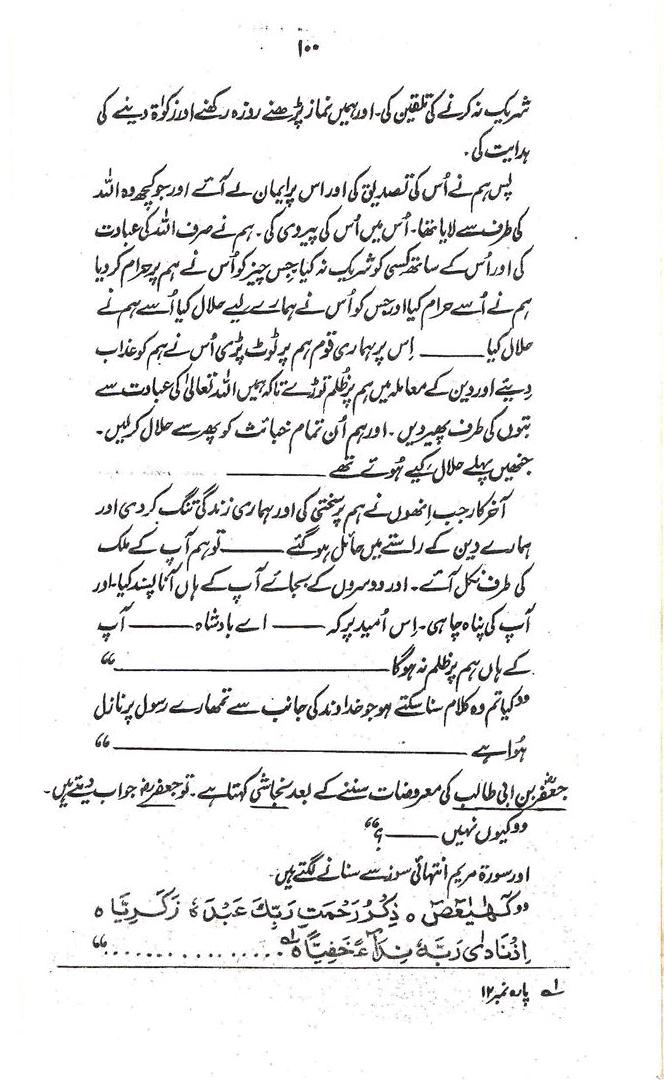 ۱۰۰
شریک نہ کرنے کی تلقین کی۔ اور ہمیں نماز پڑھنے روزہ رکھنے اور زکوٰۃ دینے کی
ہدایت کی۔
پس ہم نے اُس کی تصدیق کی اور اس پر ایمان لے آئے اور جو کچھ وہ اللہ
کی طرف سے لایا تھا۔ اُس میں اُس کی پیروی کی۔ ہم نے صرف اللہ کی عبادت
کی اور اُس کے ساتھ کسی کو شریک نہ کیا جس چیز کو اُس نے ہم پر حرام کر دیا
ہم نے اُسے حرام کیا اور جس کو اُس نے ہمارے لیے حلال کیا اُسے ہم نے
حلال کیا ——— اِس پر ہماری قوم ہم پر ٹوٹ پڑی اُس نے ہم کو عذاب
دیئے اور دین کے معاملہ میں ہم پر ظلم توڑے تاکہ ہمیں اللہ تعالیٰ کی عبادت سے
بتوں کی طرف پھیر دیں۔ اور ہم اُن تمام خبائث کو پھر سے حلال کر لیں۔
جنھیں پہلے حلال کیے ہُوئے تھے ———
آخر کار جب اِنھوں نے ہم پر سختی کی اور ہماری زندگی تنگ کر دی اور
ہمارے دین کے راستے میں حائل ہو گئے ——— تو ہم آپ کے ملک
کی طرف نکل آئے۔ اور دوسروں کے بجائے آپ کے ہاں آنا پسند کیا۔ اور
آپ کی پناہ چاہی۔ اِس اُمید پر کہ ——— اے بادشاہ ——— آپ
کے ہاں ہم پر ظلم نہ ہوگا ———“
”کیا تم وہ کلام سنا سکتے ہو جو خداوند کی جانب سے تمھارے رسول پر نازل
ہُوا ہے ———“
جعفرؓ بن ابی طالب کی معروضات سننے کے بعد نجاشی کہتا ہے۔ تو جعفرؓ جواب دیتے ہیں۔
”کیوں نہیں ———؟“
اور سورۃ مریم انتہائی سوز سے سنانے لگتے ہیں۔
”كٓهٰيٰعٓصٓ ہ ذِكْرُ رَحْمَتِ رَبِّكَ عَبْدَهٗ زَكَرِيَّا ہ
اِذْنَادٰى رَبَّهٗ نِدَآءً خَفِيًّا ہ لہ ..................“
لہ پارہ نمبر ۱۲